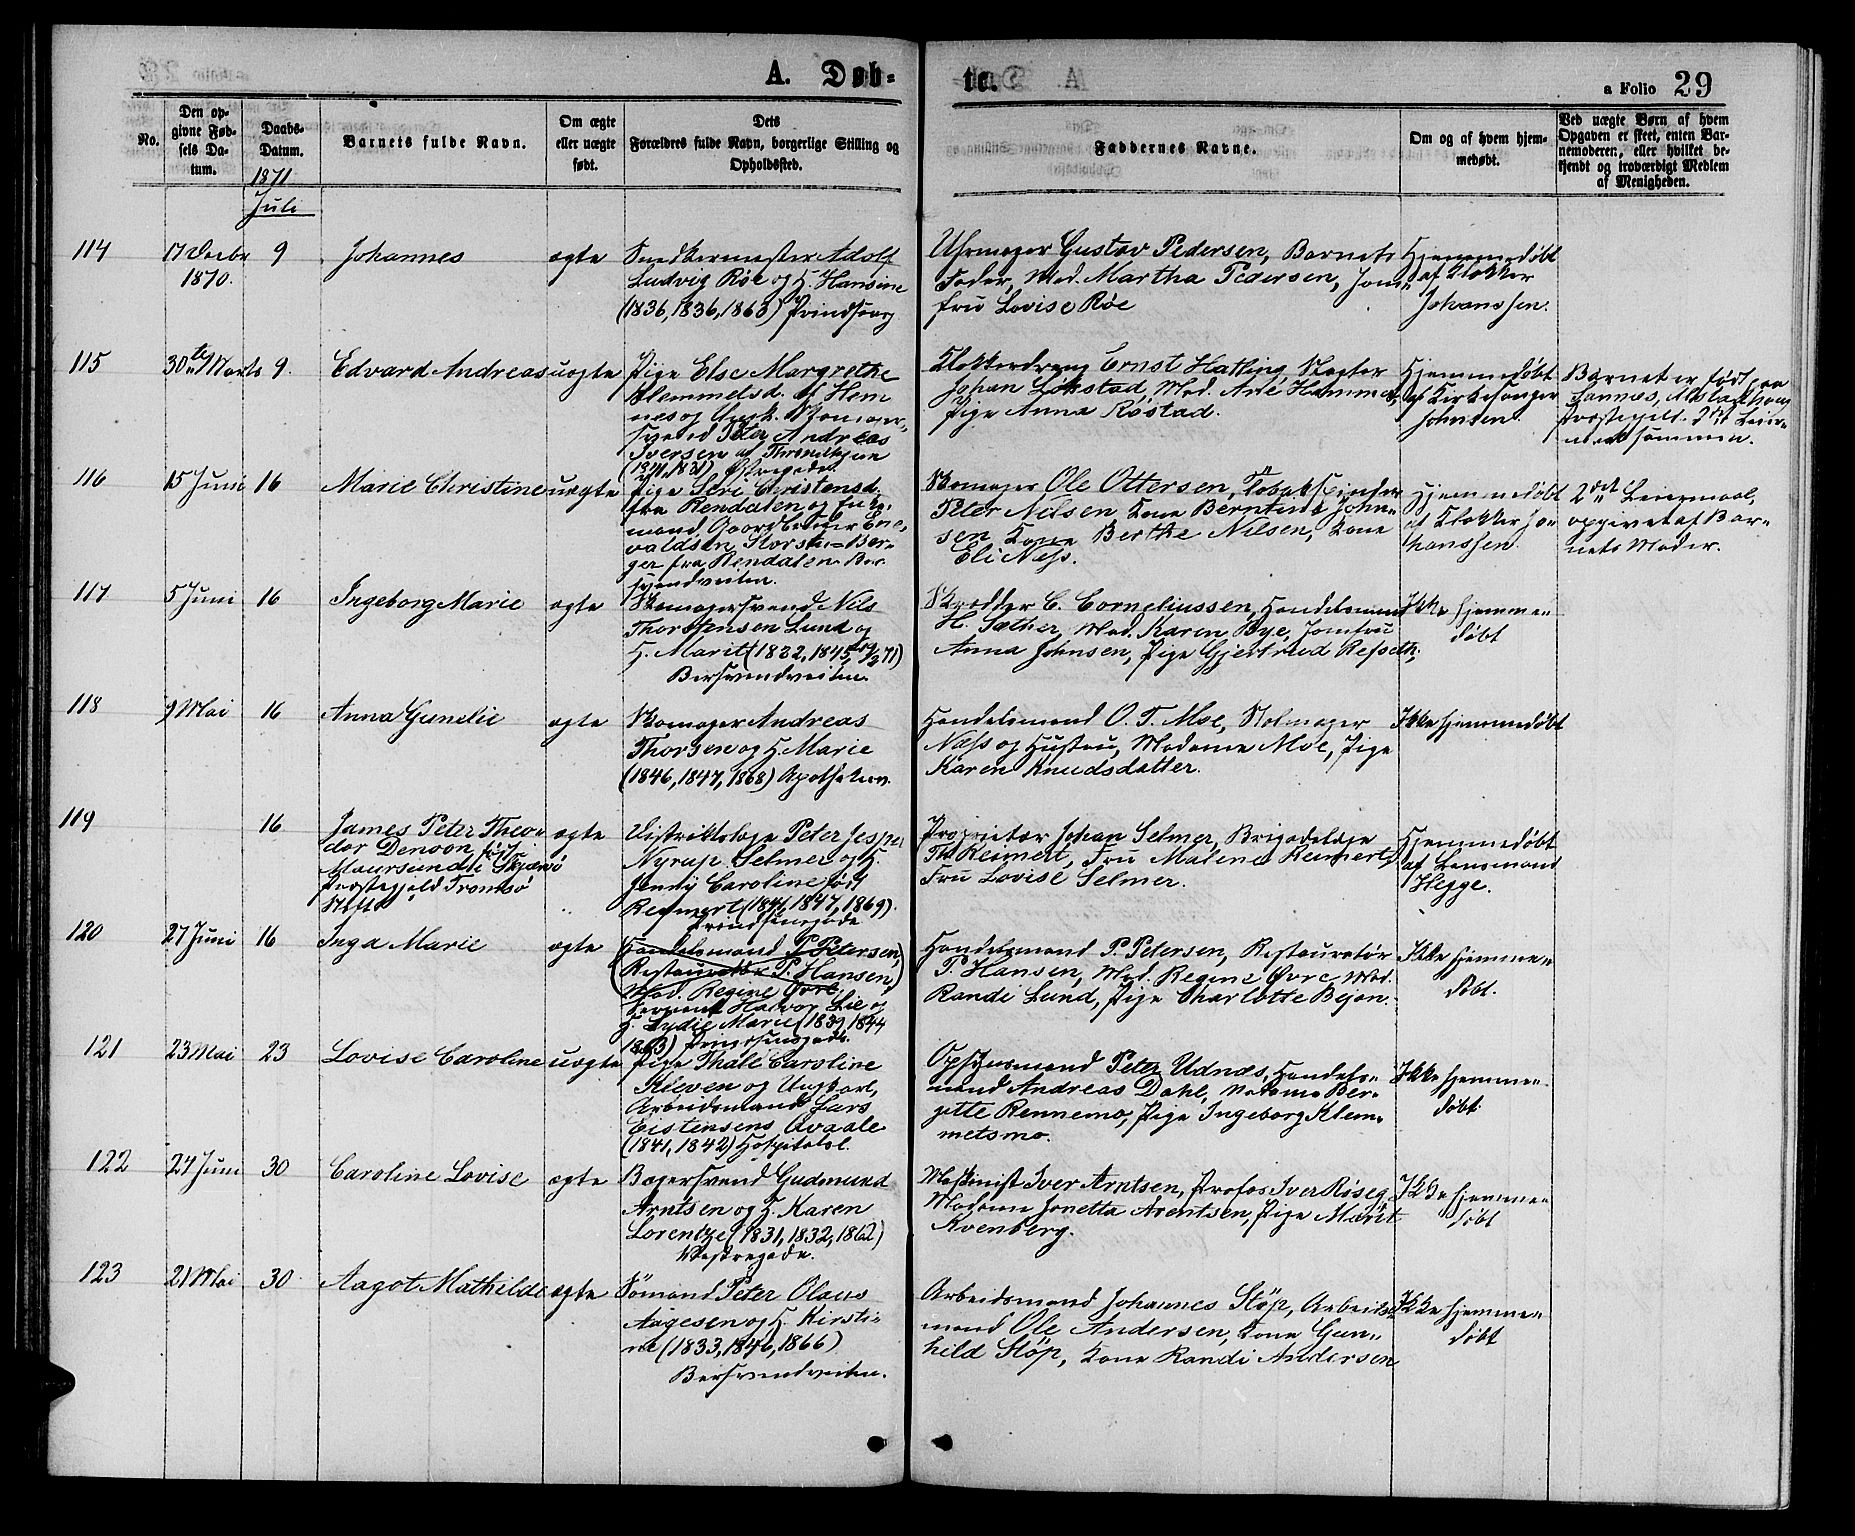 A. Døb=
te.
a Folio 29
No.
Den op-
givne Fød-
sels Da-
tum.
Daabs-
Datum.
Barnets fulde Navn.
Om ægte
eller uægte
født.
Dets
Forældres fulde Navn, borgerlige Stilling og
Opholdssted.
Faddernes Navne.
Om og af hvem hjem-
medøbt.
Ved uægte Børn af hvem
Opgaven er skeet, enten Bar-
nemoderen, eller hvilket be-
kjendt og troværdigt Medlem
af Menigheden.
1871
Juli
114
17 Decbr
1870.
9
Johannes
ægte
Snedkermester Adolf
Ludvig Röe og H. Hansine
(1836, 1836, 1863)
Uhrmager Gustav Pedersen, Barnets
Fader, Mad. Martha Pedersen, Jom-
fru Lovise Röe
Hjemmedøbt
af Klokker
Johanssen.
115
30te Marts
9.
Edvard Andreas
uægte
Pige Else Margrethe
Klemmetsd. af Hem
nes og Ungk. Skomager-
svend Peter Andreas
Iversen af Throndhjem
(1841, 1831)
Ernst Hatling
Johan Lökstad, Mad. Ane Hammer,
Pige Anna Röstad.
Hjemmedøbt
af Kirkesanger
Johnsen.
Barnet er født paa
Præstegjeld. 2det Leier-
maal sammen.
116
15 Juni
16
Marie Christine
uægte
Pige Seri Christensd.
fra Rendalen og Enke-
mand, Gaardbruger Ene-
valdsen Storstu-Ber-
ger fra Rendalen. Ber-
svendveiten.
Skomager Ole Ottersen, Tobakspinder
Peter Nilsen Kone Berntine John-
sen, Kone Berthe Nilsen, Kone
Eli Næss.
Hjemmedøbt
af Klokker Jo-
hanssen.
2det Leiermaal,
opgivet af Bar-
nets Moder.
117
5 Juni
16
Ingeborg Marie
ægte
Skomagersvend Nils
Thorstensen Lund og
H. Marit (1832, 1845, 71)
Bersvendveiten.
Skrædder C. Corneliussen, Handelsmand
H. Sæther, Mad. Karen Bye, Jomfru
Anna Johnsen, Pige Gjertrud Refseth.
Ikke hjemme-
døbt
118
9 Mai
16
Anna Gunelie
ægte
Skomager Andreas
Thorsen og H. Marie
(1846, 1847, 1868)
Handelsmand O. T. Moe, Stolmager
Næss og Hustru, Madame Moe, Pige
Karen Knudsdatter.
Ikke hjemmedøbt
119
16
James Peter Theo-
dor Denoon født i
Maursund i Skjærvö
Præstegjeld Tromsö
Stift
ægte
Distriktslæge Peter Jesper
Nyrup Selmer og H.
Jenny Caroline født
Reimert (1841, 1847, 1869).
Prindsensgade
Proprietær Johan Selmer, Brigadelæge
Th. Reimert, Fru Malene Reimert,
Fru Lovise Selmer.
Hjemmedøbt
af Lensmand
Hegge.
120
27 Juni
16
Inga Marie
ægte
(Handelsmand P. Petersen,
Restauratör P. Hansen,)
Mad. Regine Övre,
Sergeant Halvor Lie og
H. Lydie Marie (1839, 1844
1863) Prindsensgade.
Handelsmand P. Petersen, Restauratör
P. Hansen, Mad. Regine Övre, Mad.
Randi Lund, Pige Charlotte
Ikke hjemme-
døbt.
121
23 Mai
23
Lovise Caroline
uægte
Pige Thale Caroline
Kleven og Ungkarl,
Arbeidsmand Lars
Eistensens Qvaale
(1841, 1842) Hospitalsl.
Opsynsmand Peter Udnæs, Handels-
mand Andreas Dahl, Madame Ber-
gitte Rennemo, Pige Ingeborg Klem-
metsmo.
Ikke hjemme-
døbt.
122
24 Juni
30
Caroline Lovise
ægte
Bagersvend Gudmund
Arntsen og H. Karen
Lorentze (1831, 1832, 1862)
Vestregade.
Maskinist Iver Arntsen, Profos Iver Röseg,
Madam Jonetta Arentsen, Pige Marit
Kvenberg.
Ikke hjemme-
døbt
123
21 Mai
30.
Aagot Mathilde
ægte
Sömand Peter Olaus
Aagesen og H. Kirsti-
ne (1833, 1846, 1866)
Bersvendveiten.
Arbeidsmand Johannes Slöp, Arbeids-
mand Ole Andersen, Kone Gun-
hild Slöp, Kone Randi Andersen
Ikke hjemme-
døbt